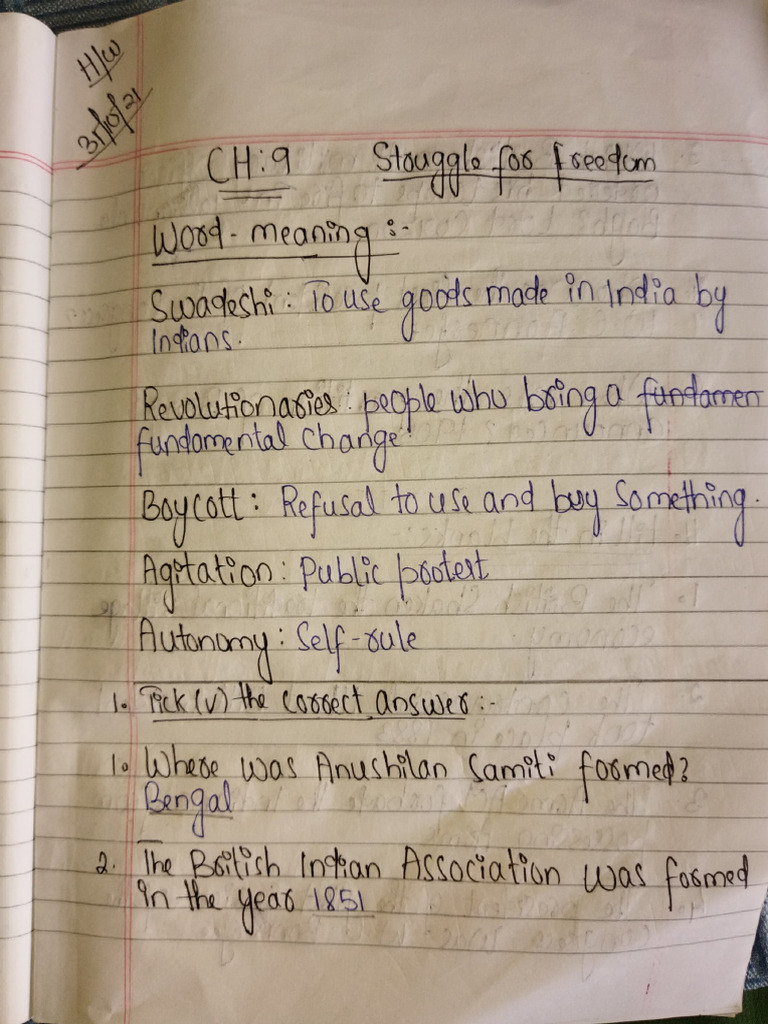 H/W
31/10/21
CH:9 Struggle for freedom
Word-meaning :-
Swadeshi: To use goods made in India by
Indians.
Revolutionaries: people who bring a fundamen
fundamental change.
Boycott: Refusal to use and buy something.
Agitation: Public protest
Autonomy: Self-rule
1. Tick (√) the correct answer:-
1. Where was Anushilan Samiti formed?
Bengal
2. The British Indian Association was formed
in the year 1851